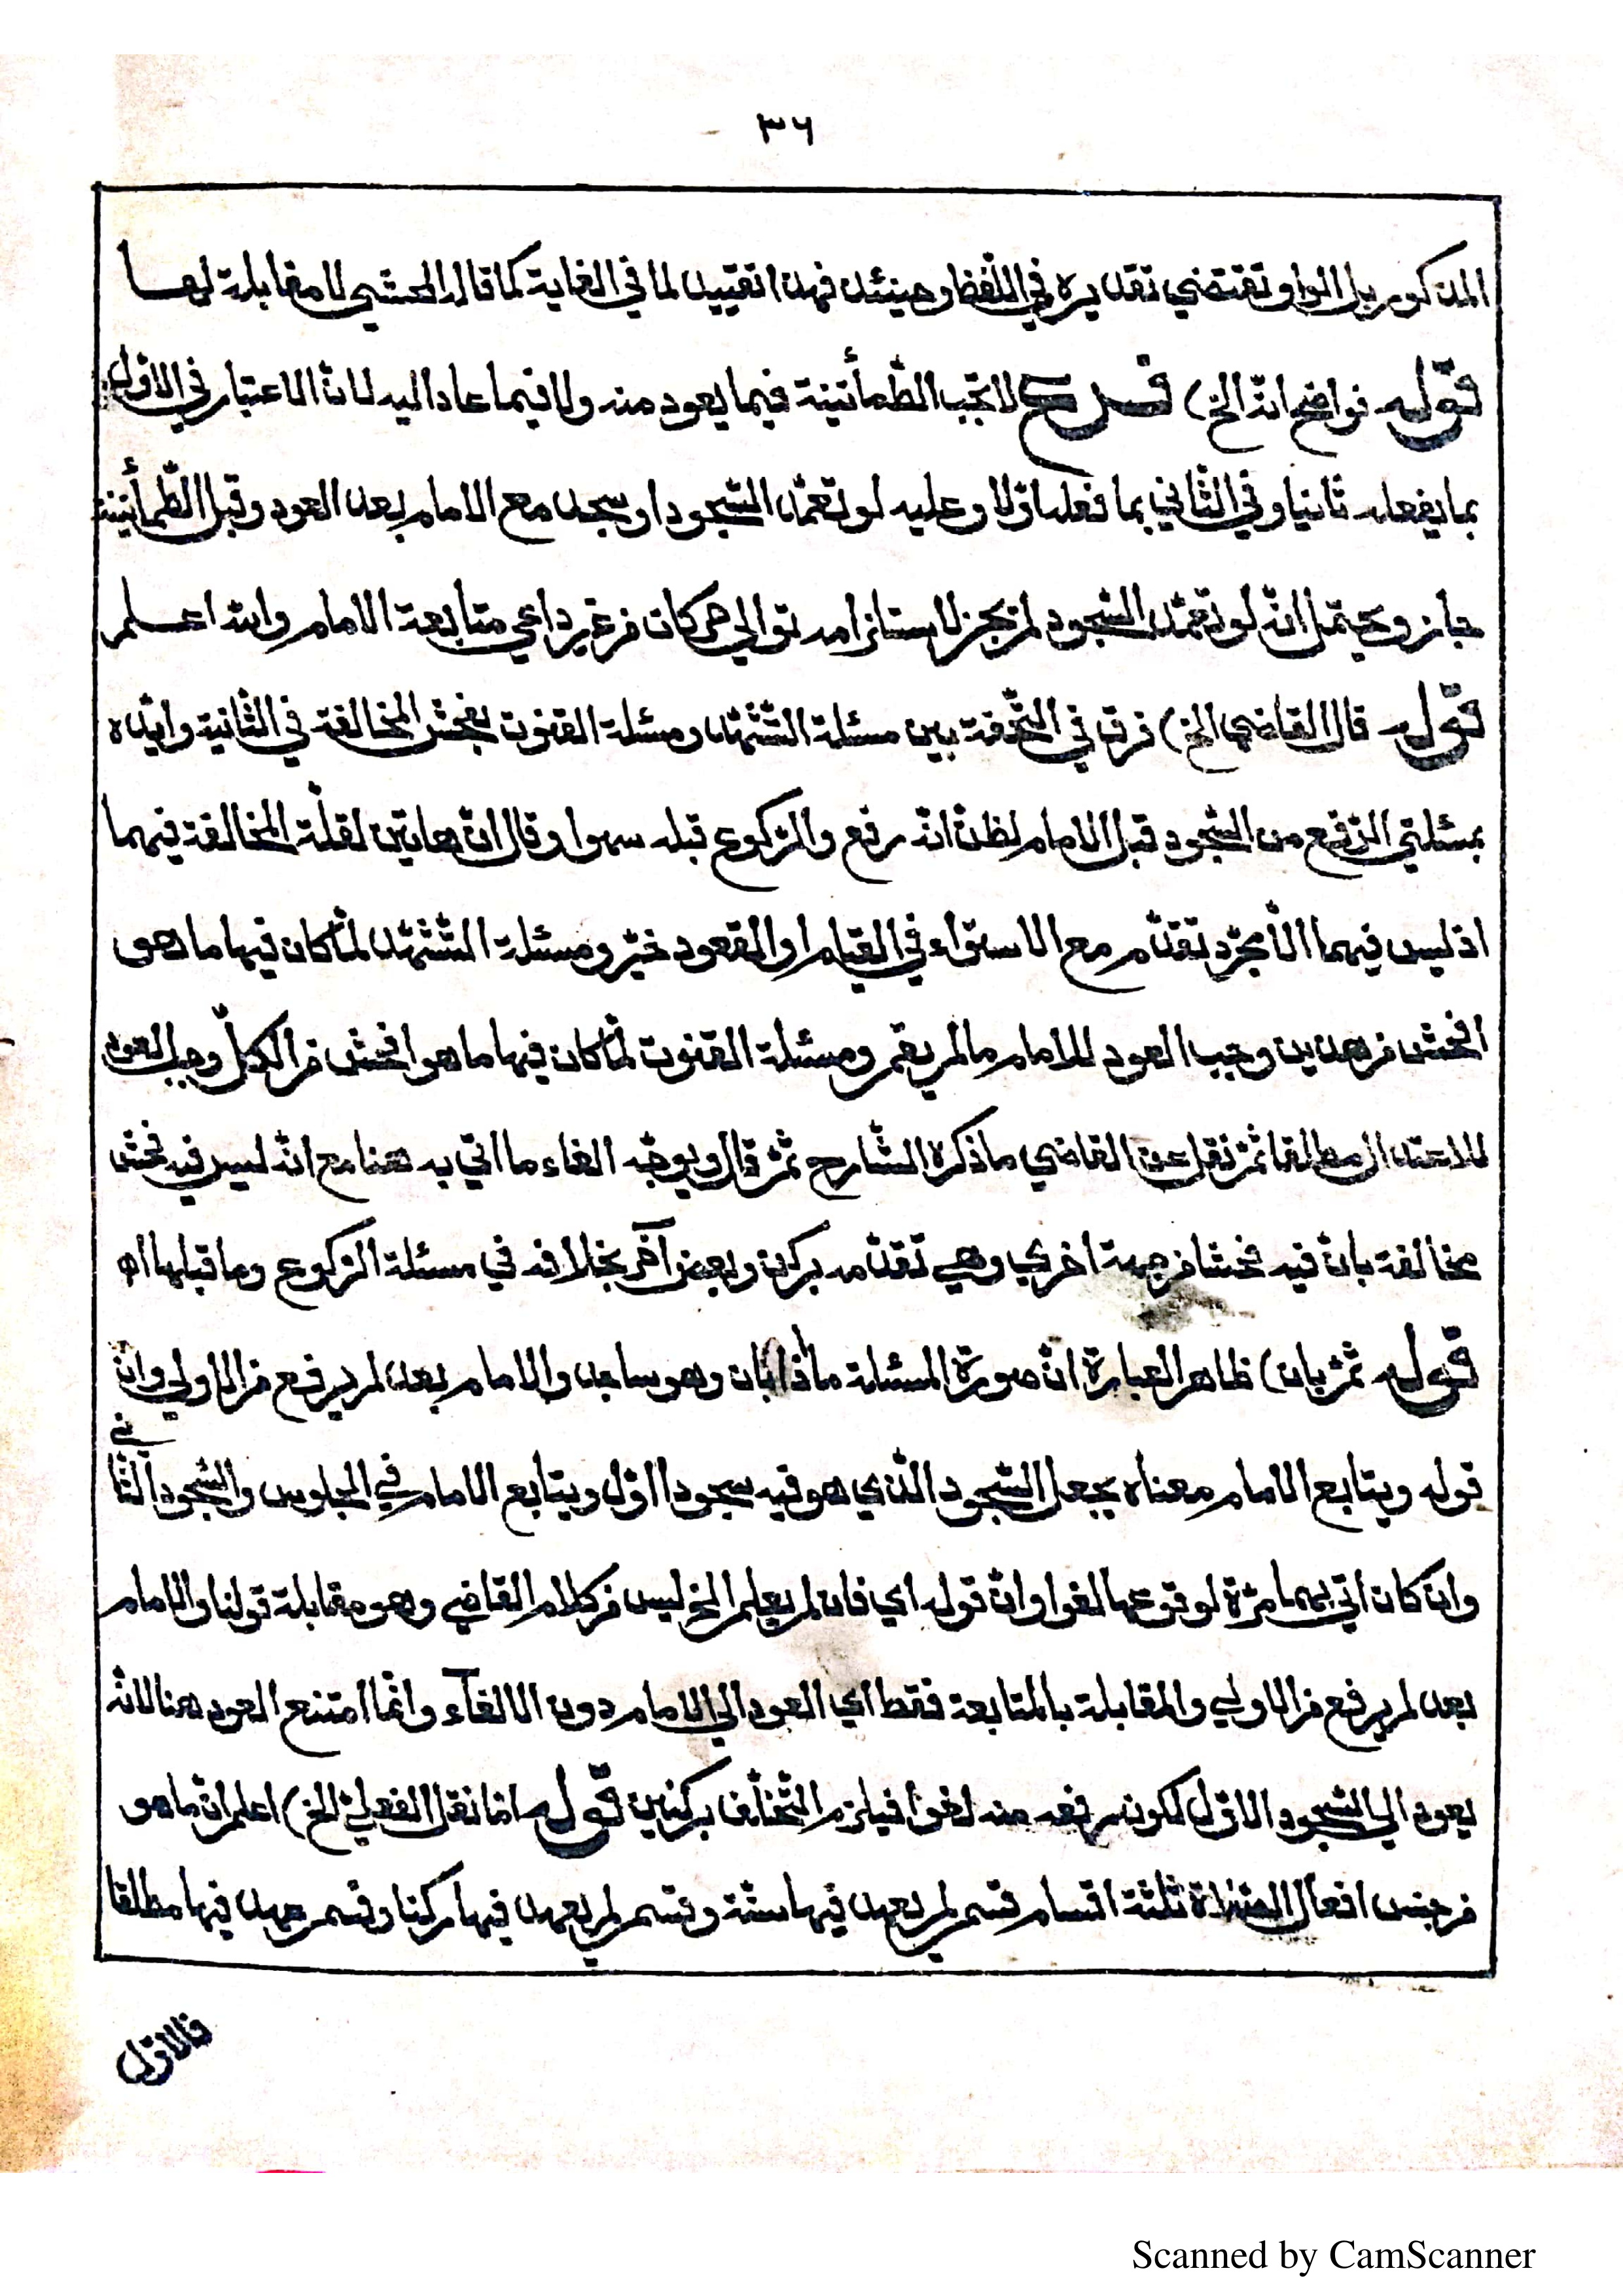 ٣٦
المذكور بل الواو تقتضي تقديره في اللفظ وحينئذ فهذا تقييد لما في الغاية كما قال المحشي لا مقابلة لها
قوله فواضح انه الخ) فرع لا تجب الطمأنينة فيما يعود منه ولا فيما عاد اليه لان الاعتبار في الاول
بما يفعله ثانيا وفي الثاني بما فعله اولا وعليه لو تعمد السجود او سجد مع الامام بعد العود وقبل الطمأنينة
جاز ويحتمل انه لو تعمد السجود لم يجز لاستلزامه توالي حركات من غير داعي متابعة الامام والله اعلم
قوله قال القاضي الخ) فرق في التحفة بين مسئلة التشهد ومسئلة القنوت بفحش المخالفة في الثانية وايده
بمسئلتي الرفع من السجود قبل الامام لظن انه رفع والركوع قبله سهوا وقال ان هاتين لقلة المخالفة فيهما
اذ ليس فيهما الا مجرد تقدم مع الاستواء في القيام او القعود خير ومسئلة التشهد لما كان فيها ما هو
افحش من هذين وجب العود للامام ما لم يقم ومسئلة القنوت لما كان فيها ما هو افحش من الكل وجب العود
للاعتدال مطلقا ثم نقل عن القاضي ما ذكره الشارح ثم قال ويوجه الغاء ما اتي به هنا مع انه ليس فيه فحش
مخالفة بان فيه فحشا من جهة اخرى وهي تقدمه بركن وبعض آخر بخلافه في مسئلة الركوع وما قبلها اه
قوله ثم بان) ظاهر العبارة ان صورة المسئلة ما اذا بان وهو ساجد والامام بعد لم يرفع من الاولى وان
قوله ويتابع الامام معناه يجعل السجود الذي هو فيه سجودا اول ويتابع الامام في الجلوس والسجود الثاني
وان كان اتى بهما مرة لوقوعها لغوا وان قوله اي فان لم يعلم الخ ليس من كلام القاضي وهو مقابلة قولنا والامام
بعد لم يرفع من الاولى والمقابلة بالمتابعة فقط اي العود الى الامام دون الالغاء وانما امتنع العود هنا لانه
يعود الى السجود الاول لكون رفعه منه لغوا فيلزم التخلف بركنين قوله اما نقل الفعلي الخ) اعلم ان ما هو
من جنس افعال الصلاة ثلثة اقسام قسم لم يعهد فيها سنة وقسم لم يعهد فيها ركنا وقسم عهد فيها مطلقا
فالاول
Scanned by CamScanner